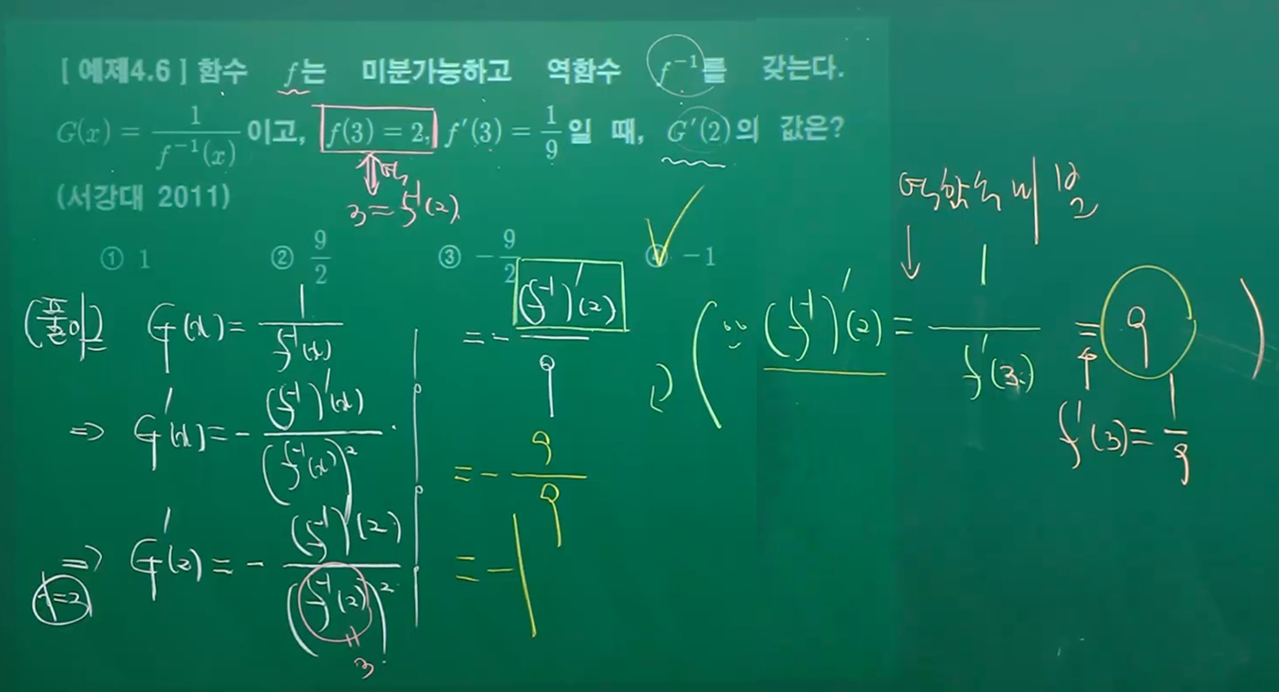 [ 예제4.6 ] 함수 f는 미분가능하고 역함수 f⁻¹를 갖는다.
G(x) = 1/f⁻¹(x) 이고, f(3) = 2, f′(3) = 1/9 일 때, G′(2)의 값은?
(서강대 2011)
3 = f⁻¹(2)
① 1 ② 9/2 ③ -9/2 ④ -1
(풀이) G(x) = 1/f⁻¹(x)
⇒ G′(x) = - (f⁻¹)′(x)/(f⁻¹(x))²
⇒ G′(2) = - (f⁻¹)′(2)/(f⁻¹(2))²
x=2
3
= - (f⁻¹)′(2)/9
= - 9/9
= -1
역함수 미분
(∵ (f⁻¹)′(2) = 1/f′(3) = 9)
f′(3) = 1/9